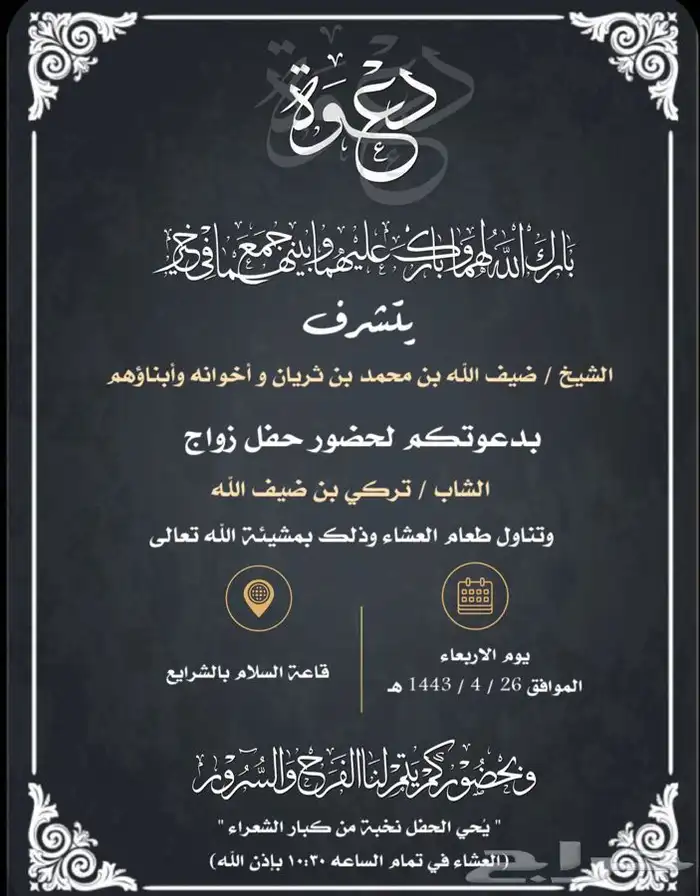 دعوة
بارك الله لهما وبارك عليهما وجمع بينهما في خير
يتشرف
الشيخ / ضيف الله بن محمد بن ثريان و أخوانه وأبناؤهم
بدعوتكم لحضور حفل زواج
الشاب / تركي بن ضيف الله
وتناول طعام العشاء وذلك بمشيئة الله تعالى
يوم الاربعاء
الموافق 26 / 4 / 1443 هـ
قاعة السلام بالشرايع
وبحضوركم يتم لنا الفرح والسرور
" يُحي الحفل نخبة من كبار الشعراء "
(العشاء في تمام الساعه ١٠:٣٠ بإذن الله)
حراج